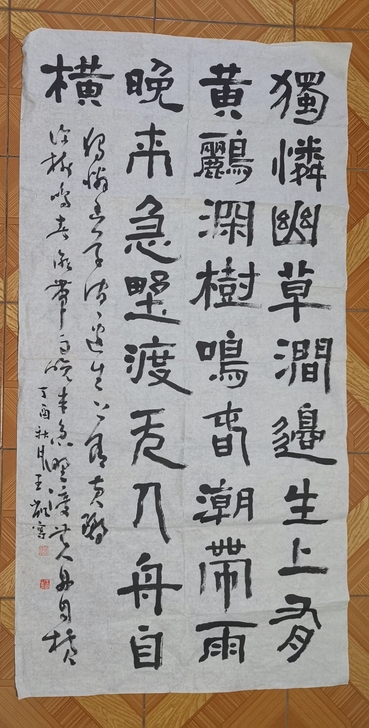 獨憐幽草澗邊生上有
黃鸝深樹鳴春潮帶雨
晚来急野渡无人舟自
橫
獨憐幽草澗邊生上有黃鸝
深樹鳴春潮帶雨晚來急野渡無人舟自橫
丁酉秋月王書